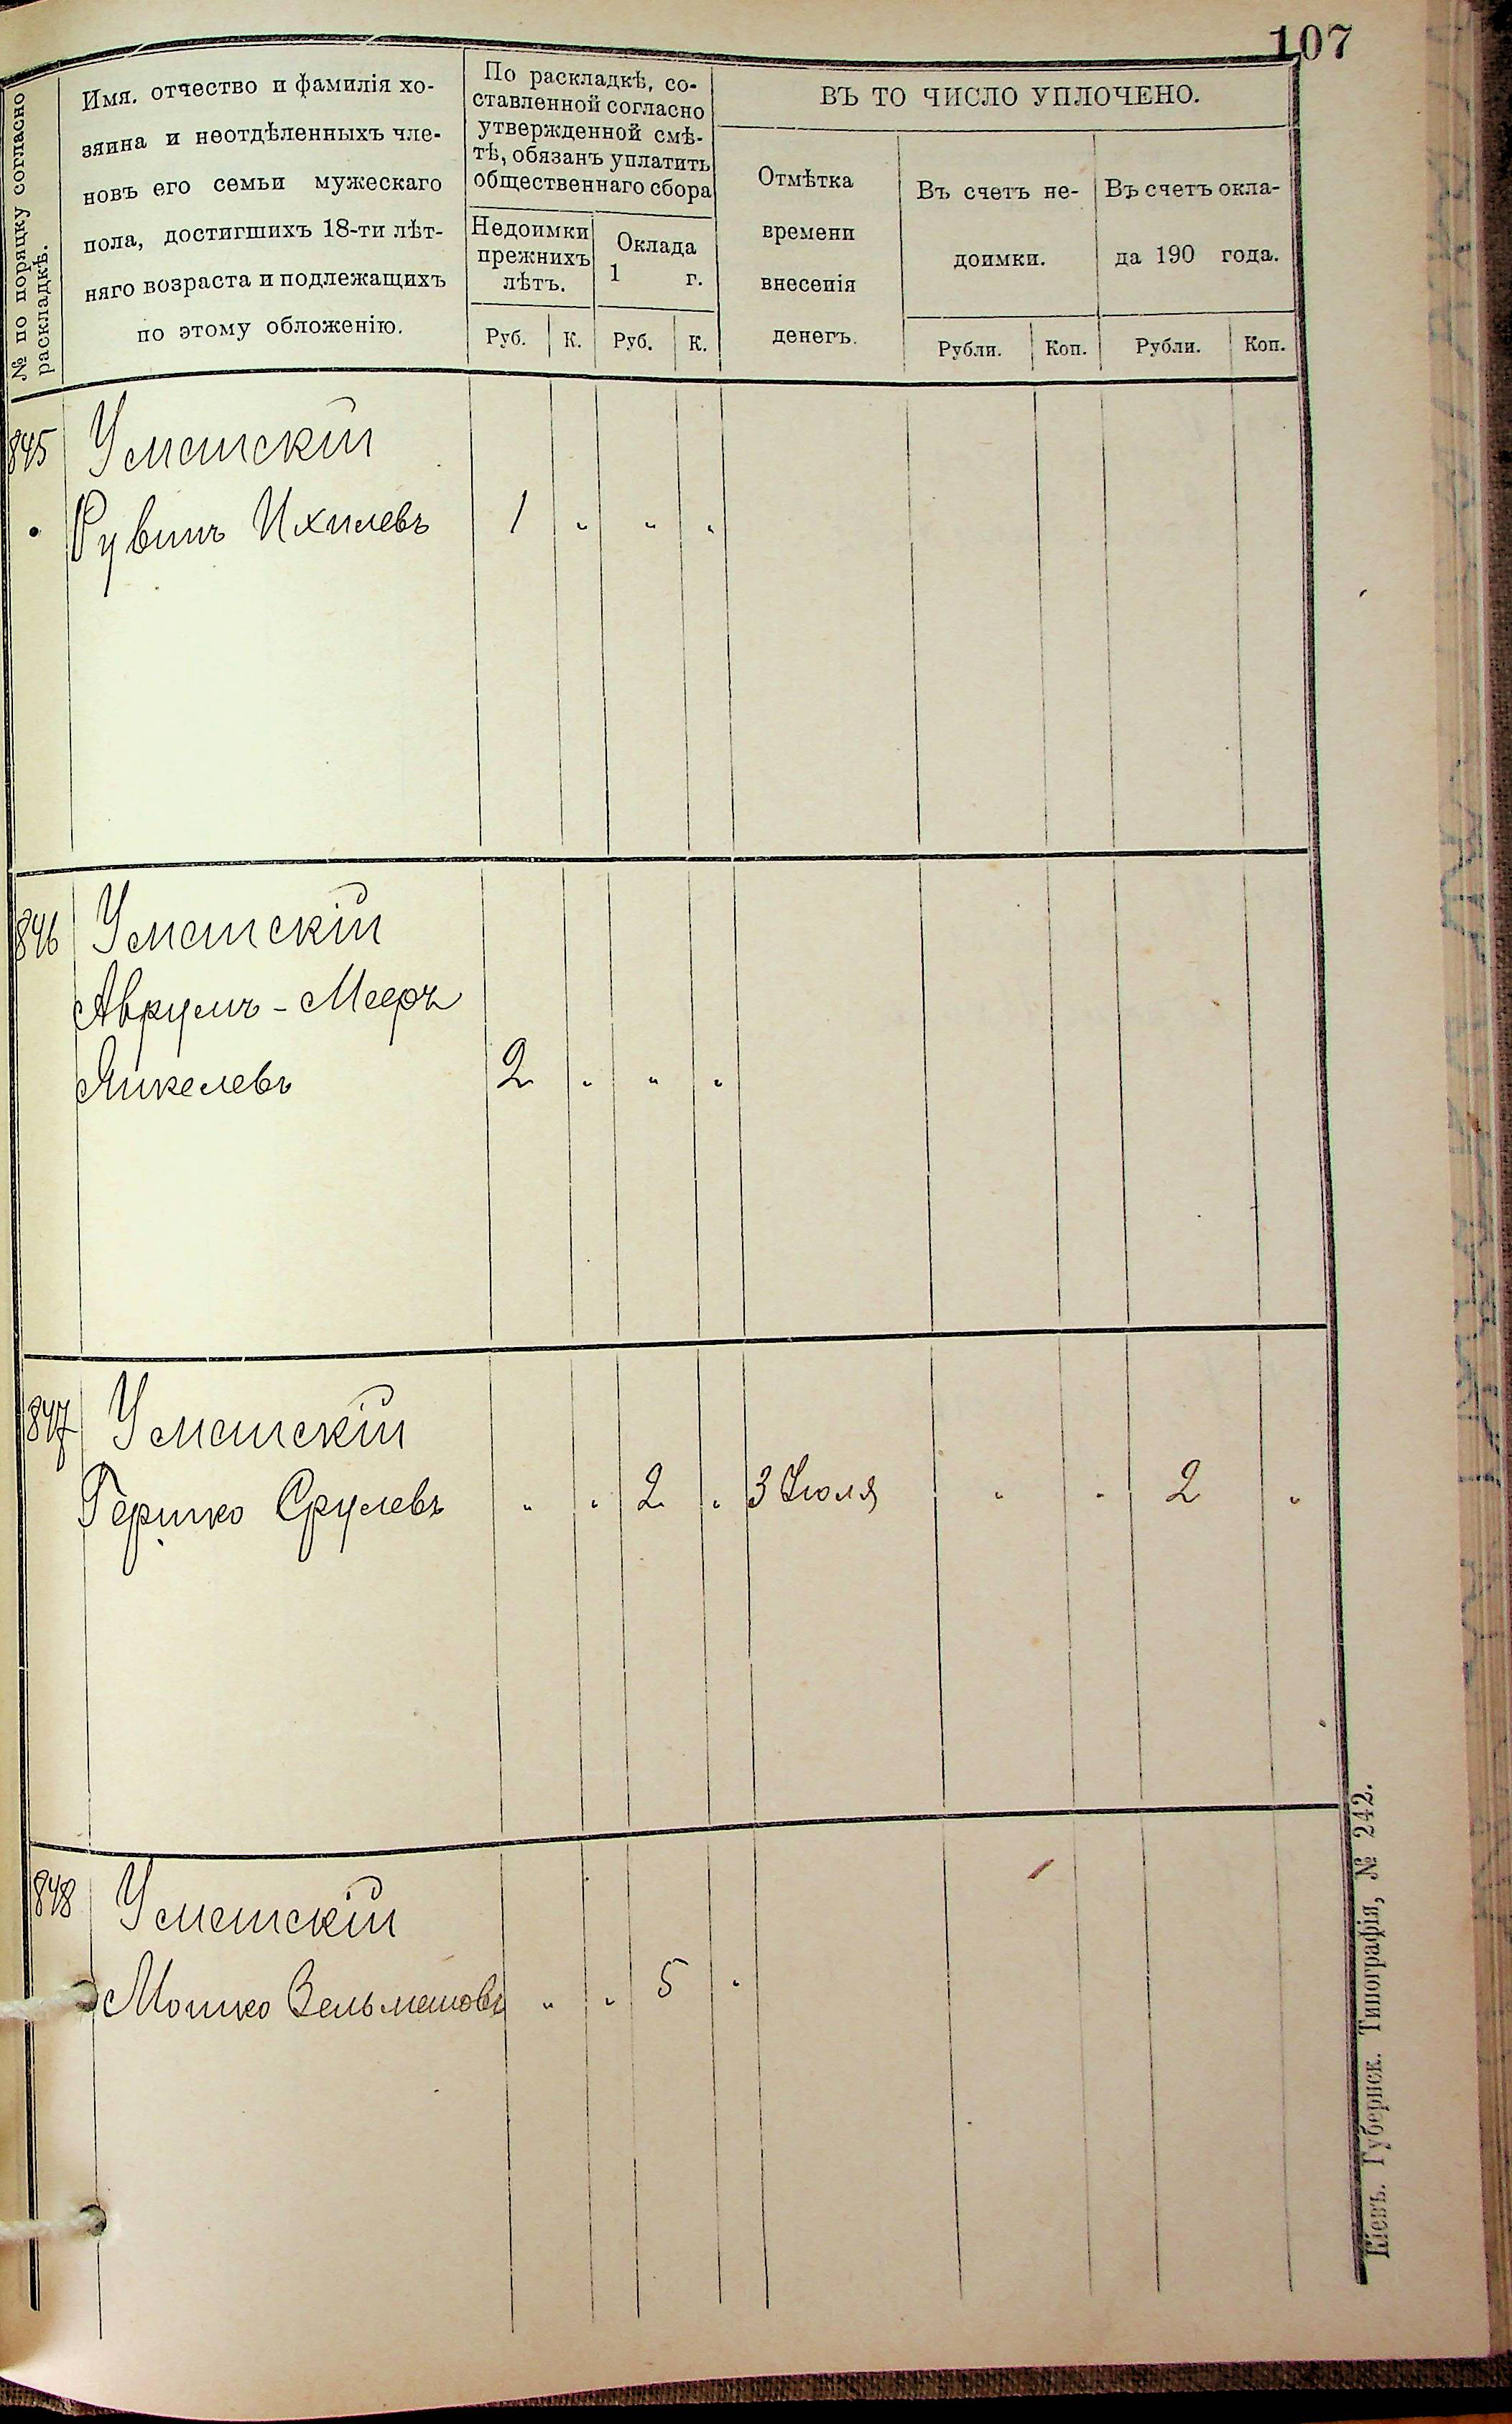 107
№ по порядку согласно
раскладкѣ.
Имя. отчество и фамилія хо-
зяина и неотдѣленныхъ чле-
новъ его семьи мужескаго
пола, достигшихъ 18-ти лѣт-
няго возраста и подлежащихъ
по этому обложенію.
По раскладкѣ, со-
ставленной согласно
утвержденной смѣ-
тѣ, обязанъ уплатить
общественнаго сбора
Недоимки
прежнихъ
лѣтъ.
Оклада
1 г.
Руб. К. Руб. К.
ВЪ ТО ЧИСЛО УПЛОЧЕНО.
Отмѣтка
времени
внесенія
денегъ.
Въ счетъ не-
доимки.
Въ счетъ окла-
да 190 года.
Рубли. Коп. Рубли. Коп.
845 Уманскій
Рувинъ Ихилевъ 1 " " "
846 Уманскій
Аврумъ-Мееръ
Янкелевъ 2 " " "
847 Уманскій
Гершко Срулевъ " " 2 " 3 Іюля " " 2 "
848 Уманскій
Мошко Зельмановъ " " 5 "
Кіевъ. Губернск. Типографія, № 242.